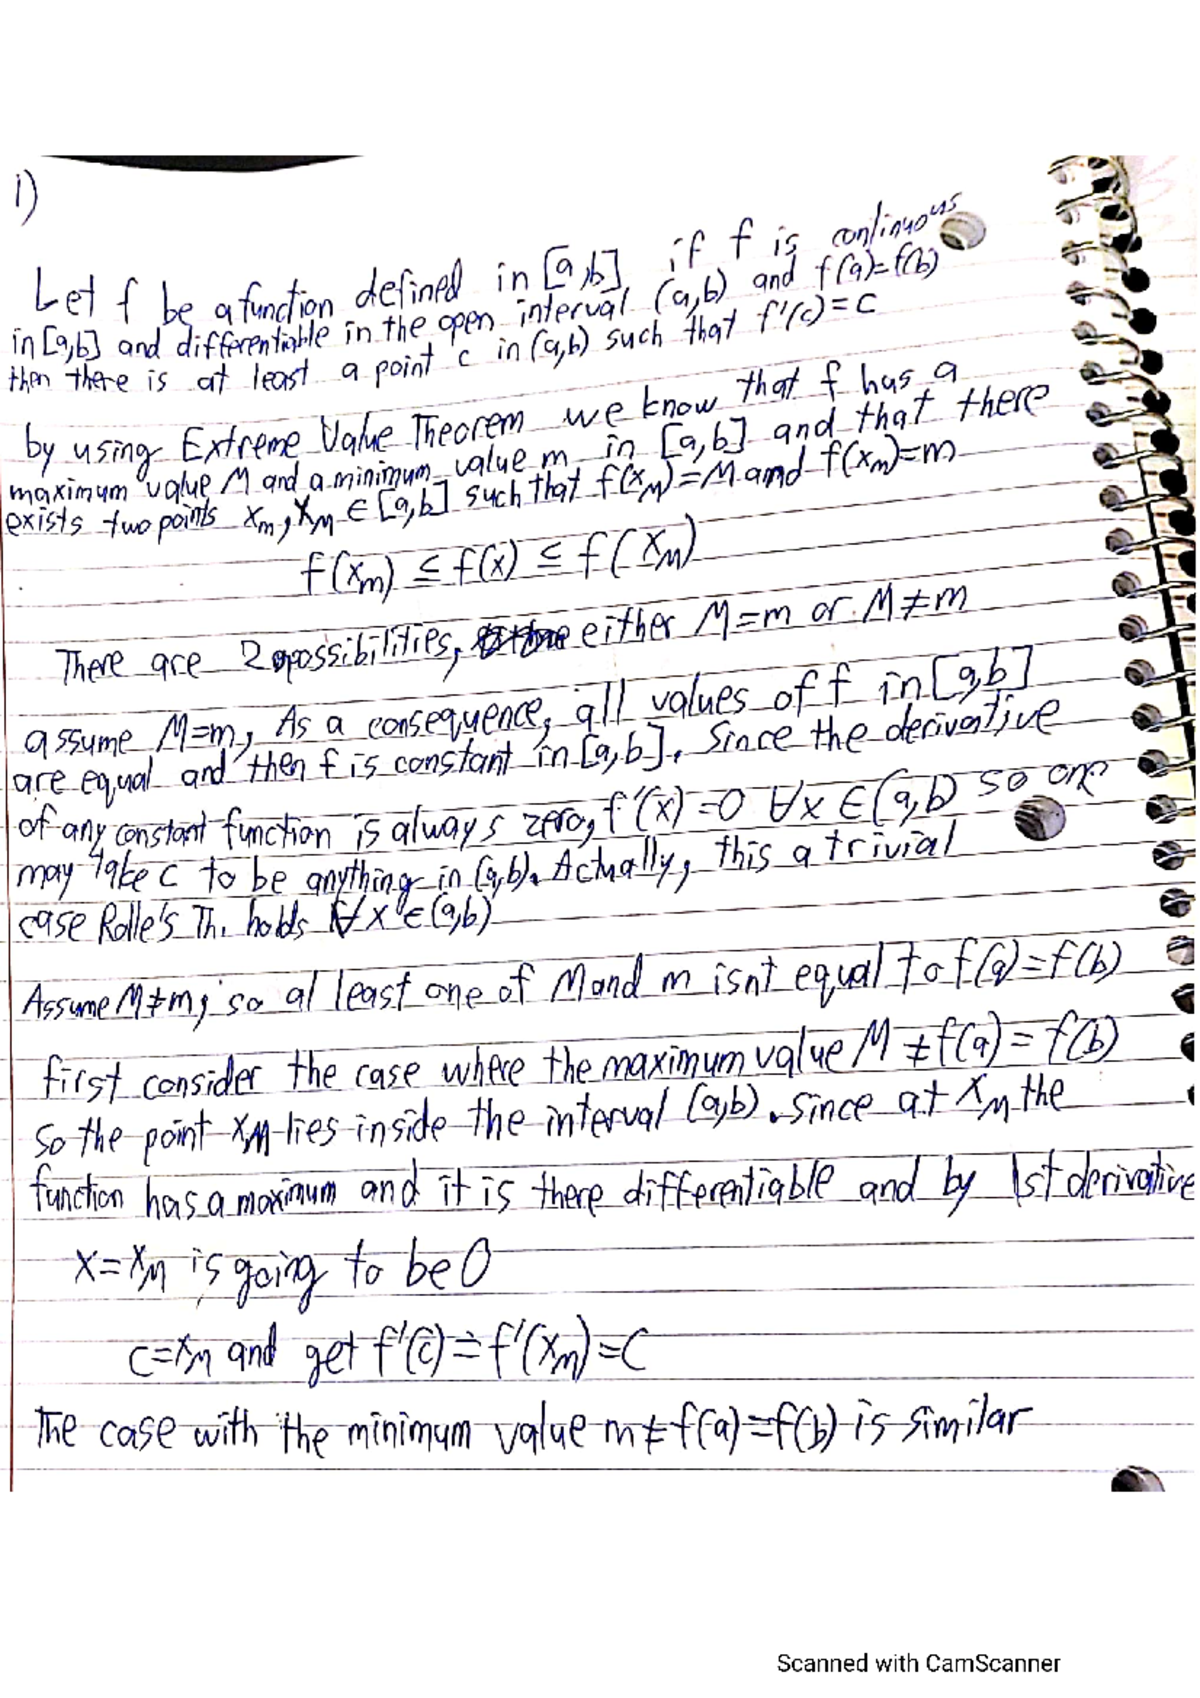 1)
Let f be a function defined in [a,b], if f is continuous
in [a,b] and differentiable in the open interval (a,b) and f(a)=f(b)
then there is at least a point c in (a,b) such that f'(c)=c
by using Extreme Value Theorem we know that f has a
maximum value M and a minimum value m in [a,b] and that there
exists two points xm, xM ∈ [a,b] such that f(xM)=M and f(xm)=m
f(xm) ≤ f(x) ≤ f(xM)
There are 2 possibilities, either M=m or M≠m
assume M=m, As a consequence, all values of f in [a,b]
are equal and then f is constant in [a,b]. Since the derivative
of any constant function is always zero, f'(x)=0 ∀x ∈ (a,b) so one
may take c to be anything in (a,b). Actually, this a trivial
case Rolle's Th. holds ∀x ∈ (a,b)
Assume M≠m, so al least one of M and m isnt equal to f(a)=f(b)
first consider the case where the maximum value M ≠ f(a) = f(b)
So the point xM lies inside the interval (a,b). Since at xM the
function has a maximum and it is there differentiable and by 1st derivative
x=xM is going to be 0
c=xM and get f'(c)=f'(xm)=c
The case with the minimum value m≠f(a)=f(b) is similar
Scanned with CamScanner